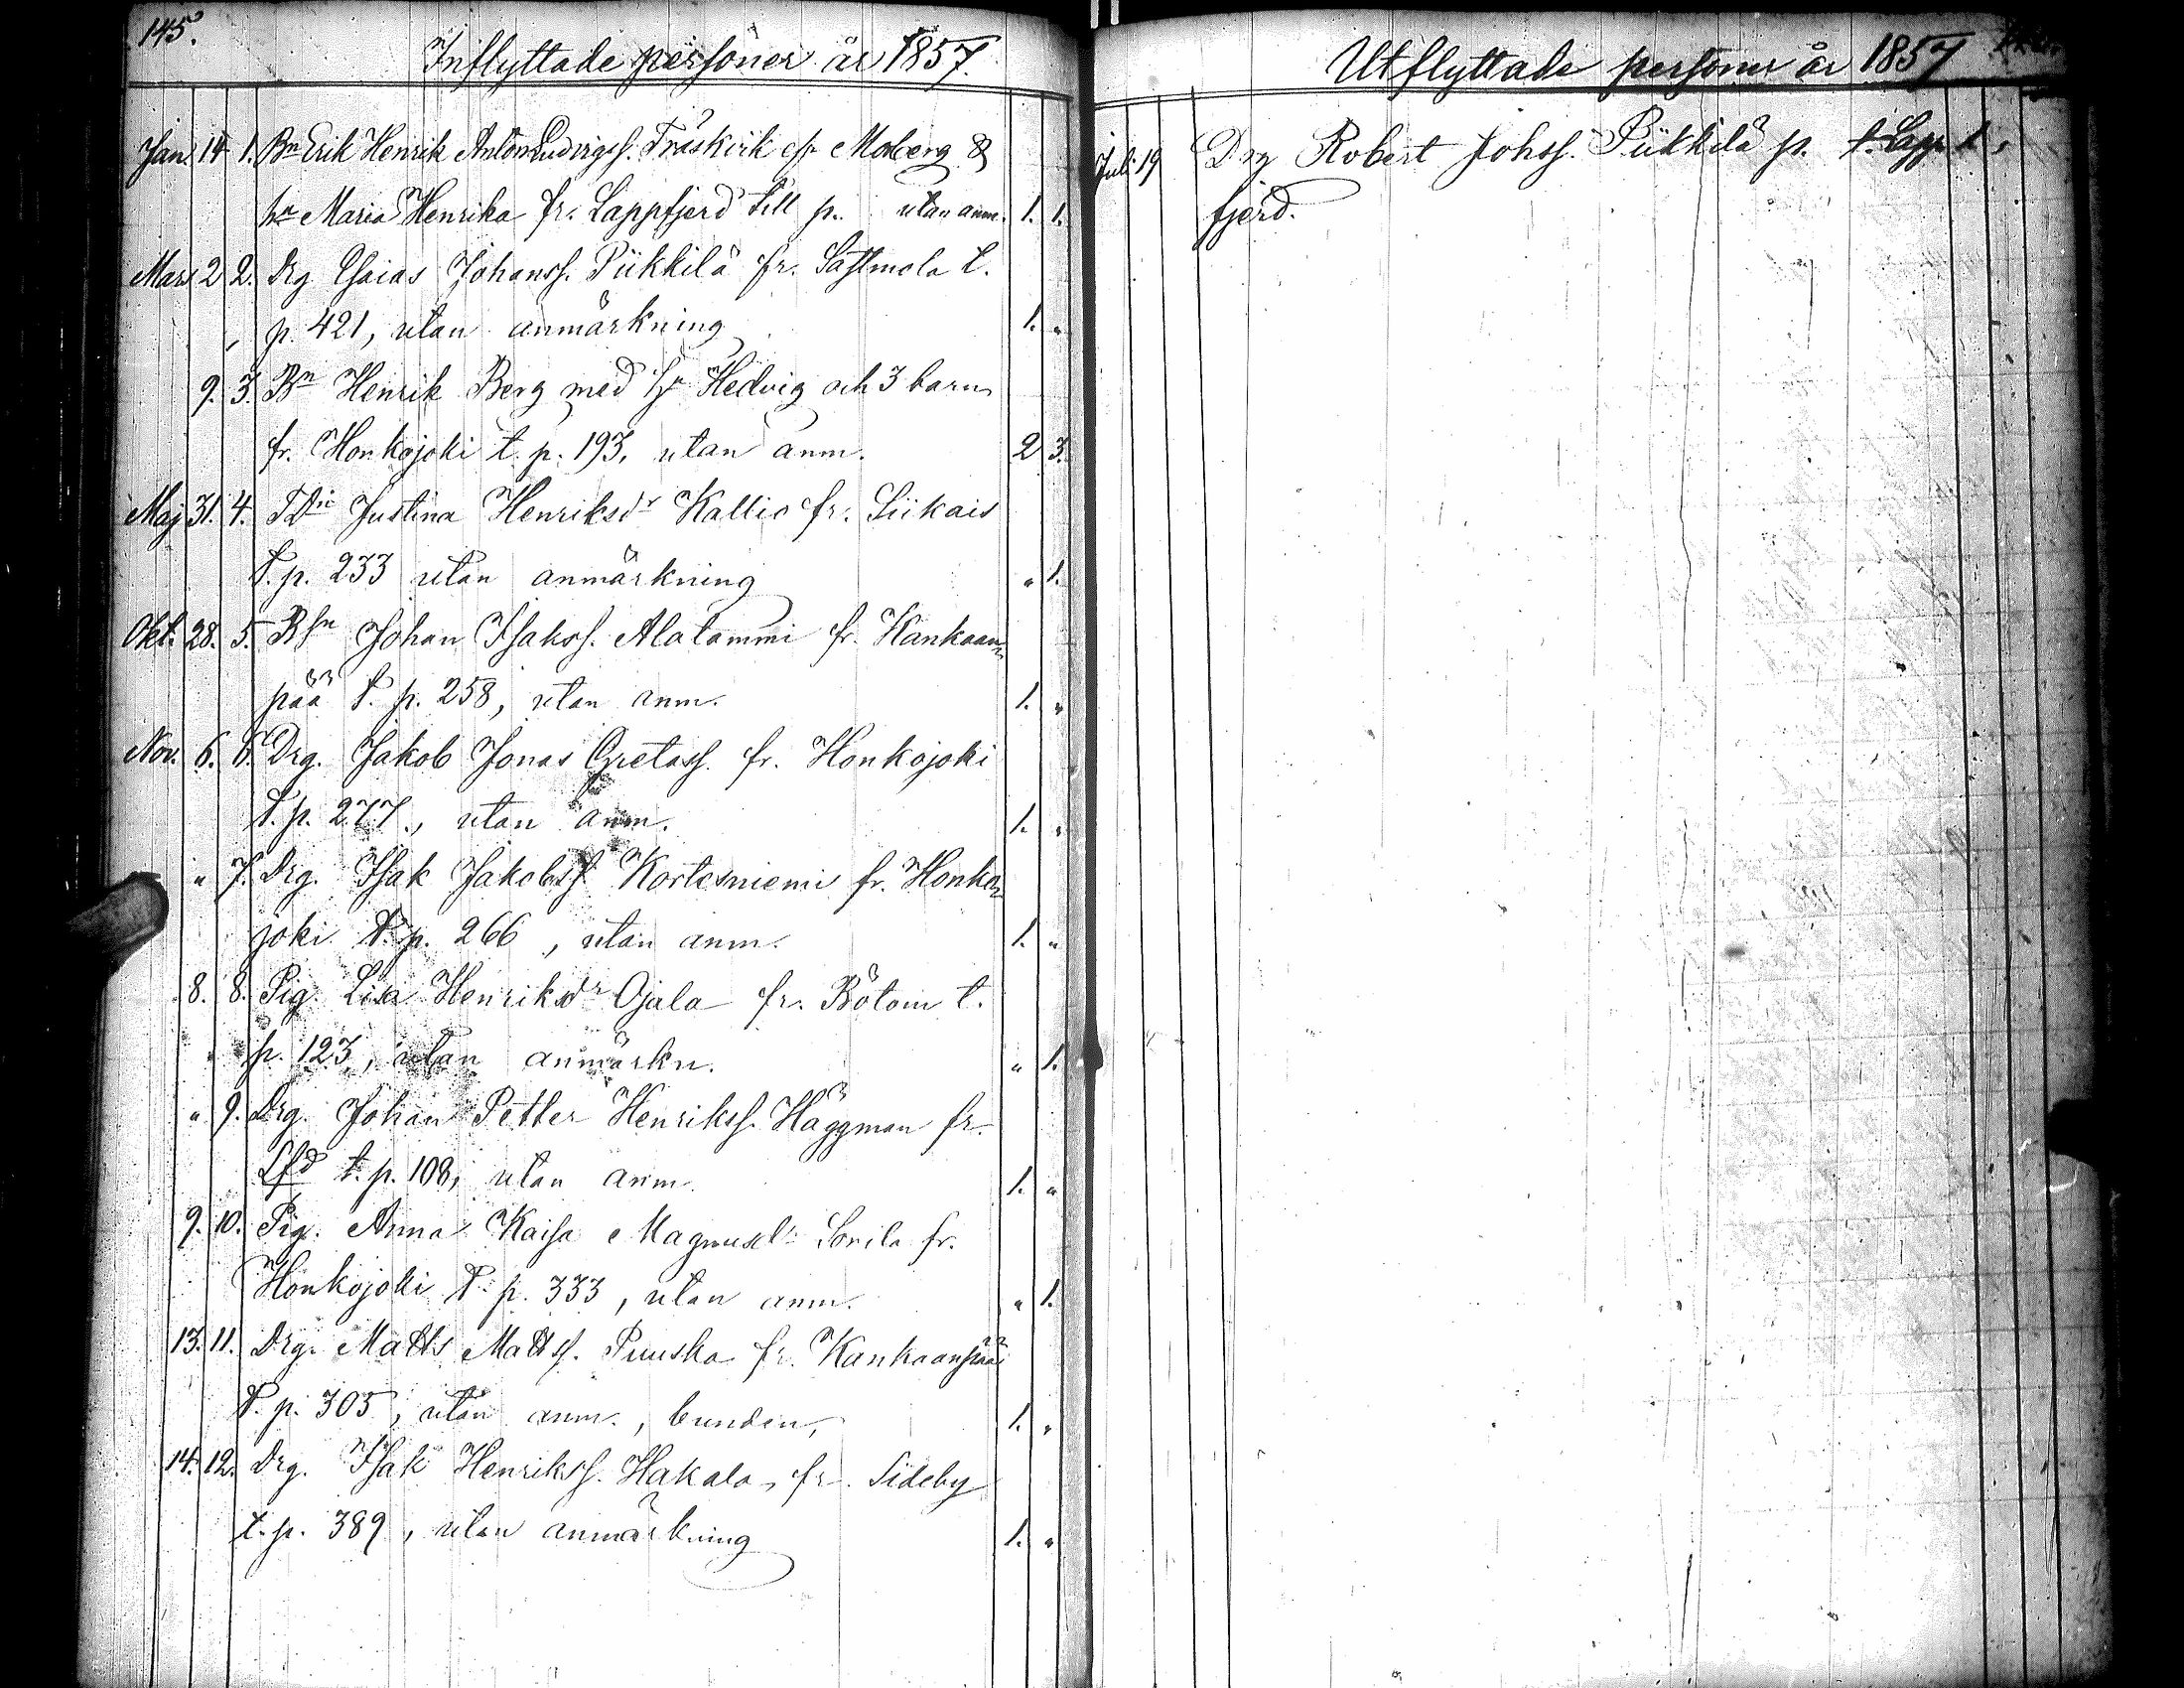 145.
Inflyttade personer år 1857.
Jan. 14 1. Bn Erik Henrik Anton Ludvigss. Träskvik el. Moberg &
ha Maria Henrika fr. Lappfjerd till p. utan anm. 1. 1.
Mars 2 2. Drg Esaias Johanss. Piikkilä fr. Sastmola t.
p. 421, utan anmärkning 1. "
9. 3. Bn Henrik Berg med hu Hedvig och 3 barn
fr. Honkojoki t. p. 193, utan anm. 2 3.
Maj 31. 4. Justina Henriksdr Kallio fr. Siikais
t. p. 233 utan anmärkning " 1.
Okt. 28. 5. Bsn Johan Isakss. Alatammi fr. Kankaan
pää t. p. 258, utan anm. 1. "
Nov. 6. 6. Drg. Jakob Jonas Gretass. fr. Honkojoki
t. p. 277., utan anm. 1. "
" 7. Drg. Isak Jakobss Kortesniemi fr. Honko
joki t. p. 266, utan anm. 1. "
8. 8. Pig. Lisa Henriksdr Ojala fr. Bötom t.
p. 123, utan anmärkn. " 1.
" 9. Drg. Johan Petter Henrikss. Häggman fr.
Lfd t. p. 108, utan anm 1. "
9. 10. Pig. Anna Kaisa Magnusdr Sorila fr.
Honkojoki t. p. 333, utan anm. " 1.
13. 11. Drg. Matts Mattss. Puuska fr. Kankaanpää
t. p. 305, utan anm., bunden, 1. "
14. 12. Drg. Isak Henrikss. Hakala, fr. Sideby
t. p. 389, utan anmärkning 1. "
Utflyttade personer år 1857
Juli 19 Drg Robert Johss. Piikkilä p. t. Lapp
fjerd.